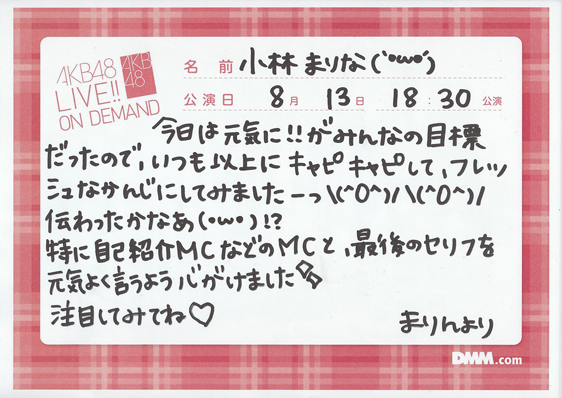 AKB48
LIVE!!
ON DEMAND
AKB
48
名 前 小林 まりな(`•ω•´)
公演日 8月 13日 18:30 公演
今日は元気に!!がみんなの目標
だったので、いつも以上に キャピキャピして、フレッ
シュなかんじにしてみましたーっ\(^O^)/\(^O^)/
伝わったかなぁ(•ω•)!?
特に自己紹介MCなどのMCと、最後のセリフを
元気よく言うよう心がけました
注目してみてね♡
まりんより
DMM.com